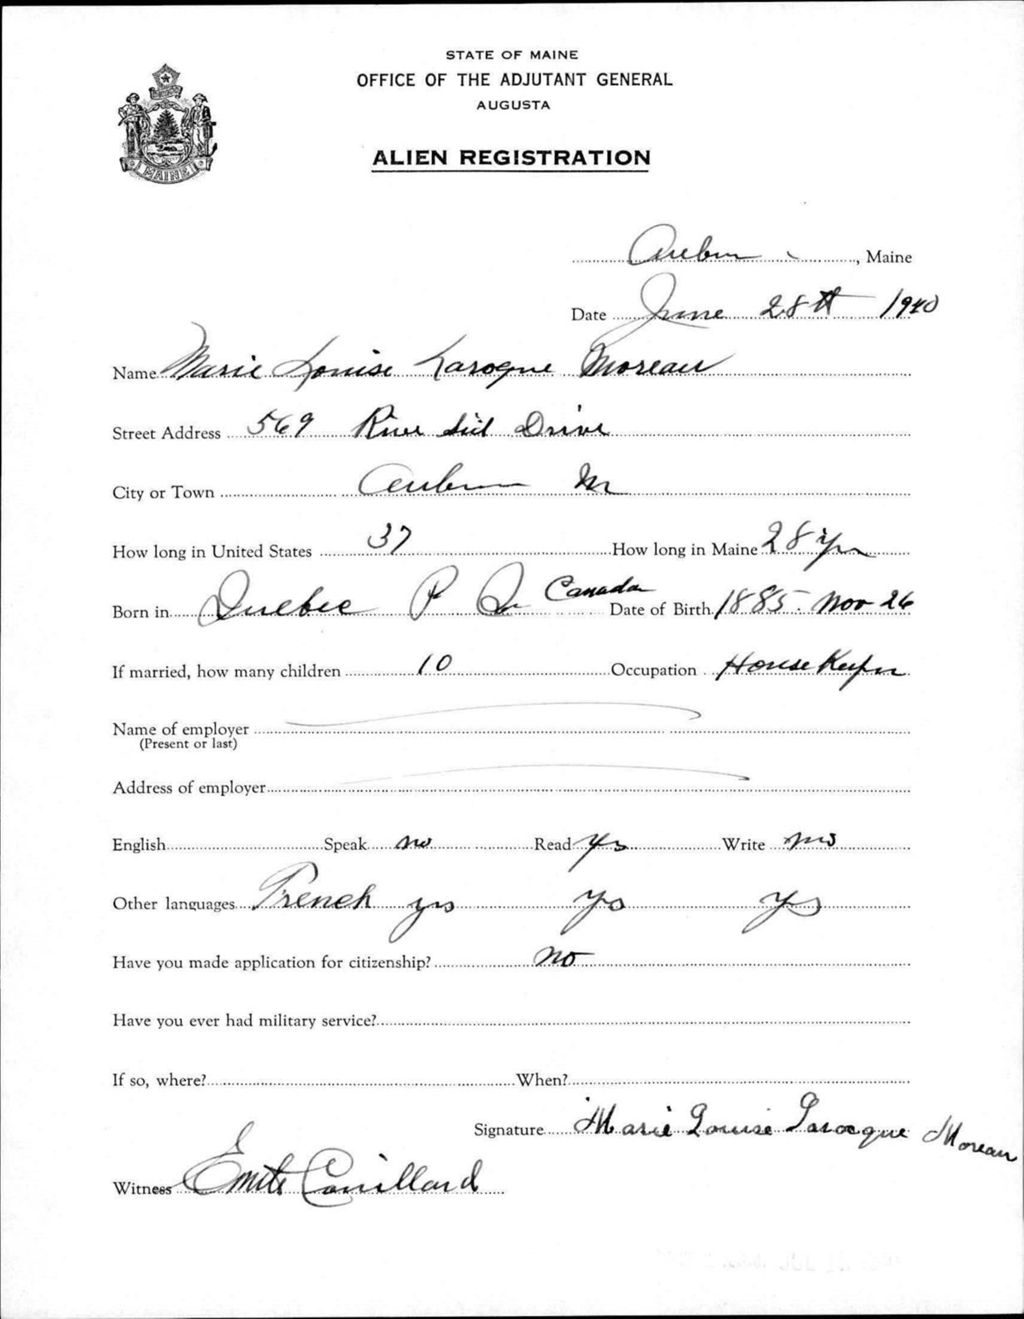 STATE OF MAINE
OFFICE OF THE ADJUTANT GENERAL
AUGUSTA
ALIEN REGISTRATION
MAINE
Auburn, Maine
Date June 28th 1940
Name Marie Louise Larogue Moreau
Street Address 569 River sid Drive
City or Town Auburn Me
How long in United States 37 How long in Maine 28 yrs
Born in Quebec P Q Canada Date of Birth 1885 Nov 26
If married, how many children 10 Occupation House Keeper
Name of employer
(Present or last)
Address of employer
English Speak no Read yes Write no
Other languages French yes yes yes
Have you made application for citizenship? No
Have you ever had military service?
If so, where? When?
Signature Marie Louise Larocque Moreau
Witness Emile